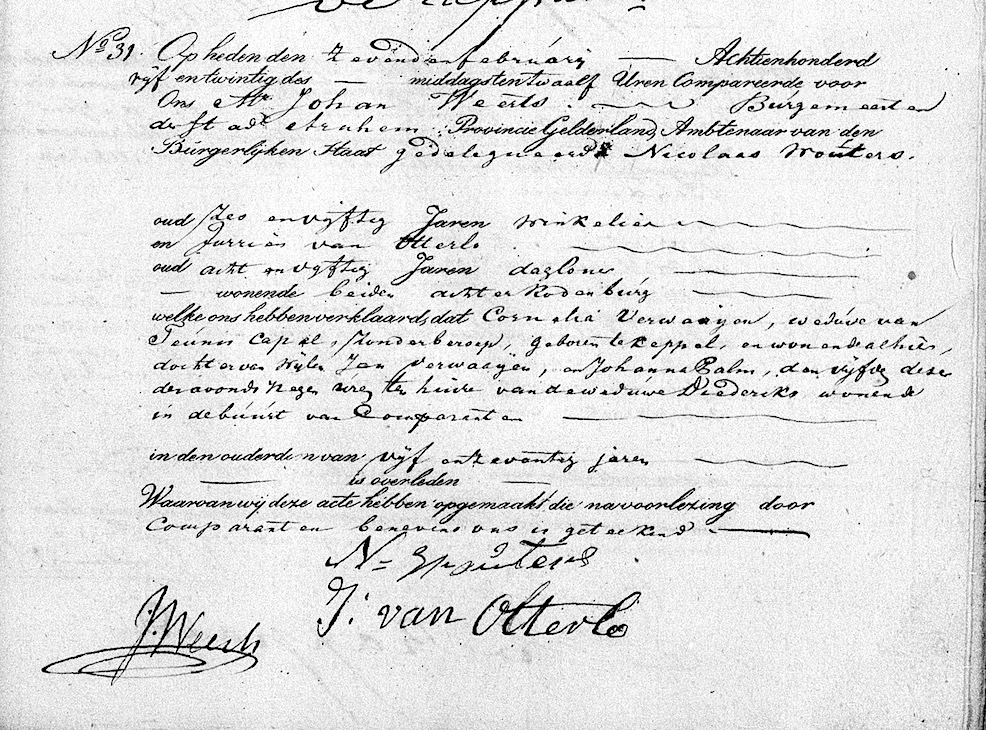 No 31. Op heden den zevenden februarij — Achtienhonderd
vijf en twintig des — middags ten twaalf Uren Compareerde voor
Ons Mr. Johan Weerts. Burgemeester
der stad Arnhem, Provincie Gelderland, Ambtenaar van den
Burgerlijken Staat gedelegueerd Nicolaas Wouters.
oud Zes en vijftig Jaren Winkelier
en Jurrien van Otterlo
oud acht en vijftig Jaren dagloner
— wonende beiden achter Rodenburg
welke ons hebben verklaard, dat Cornelia Verwaaijen, weduwe van
Teunis Cappel, Zonder beroep, geboren te Keppel, en wonende alhier,
dochter van wijlen Jan Verwaaijen, en Johanna Palm, den vijfde dezer
des avonds negen uren ten huize van de weduwe Diederiks wonende
in de buurt van Comparanten
in den ouderdom van vijf en zeventig jaren
is overleden
Waarvan wij deze acte hebben opgemaakt die na voorlezing door
Comparanten benevens ons is geteekend
N. Wouters
J. van Otterlo
J. Weerts